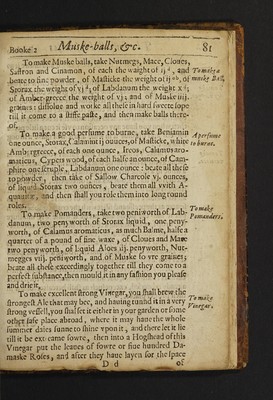 Booke 2 Muske-balls, &c. 81
To make Muske balls, take Nutmegs, Mace, Cloues,
Saffron and Cinamon, of each the waight of ij s, and
beate to fine powder, of Masticke the weight of ij
Storax the weight of vj s, of Labdanum the weight x s;
of Amber-greece the weight of vj; and of Muske iiij.
graines: dissolue and worke all these in hard sweete sope
till it come to a stiffe paste, and then make balls there-
of.
To make a Muske Ball.
To make a good perfume to burne, take Beniamin
one ounce, Storax, Calamint ij ounces, of Masticke, white
Ambergreece, of each one ounce, Ireos, Calamus aro-
maticus, Cypers wood, of each halfe an ounce, of Cam-
phire one scruple, Labdanum one ounce: beate all these
to powder, then take of Sallow Charcole vj. ounces,
of liquid Storax two ounces, beate them all with A-
and then shall you role them into long round
roles.
A perfume to burne.
To make Pomanders, take two penyworth of Lab-
danum, two penyworth of Storax liquid, one peny-
worth, of Calamus aromaticus, as much Balme, halfe a
quarter of a pound of fine waxe, of Cloues and Mace
two penyworth, of Liquid Aloes iij. penyworth, Nut-
megges viij. penyworth, and of Muske foure graines;
beate all these exceedingly together till they come to a
perfect substance, then mould it in any fashion you please
and drie it.
To make Pomanders.
To make excellent strong Vinegar, you shall brew the
strongest Ale that may bee, and hauing tunnd it in a very
strong vessell, you shal set it either in your garden or some
other safe place abroad, where it may haue the whole
summer dates sunne to shine vpon it, and there let it lie
till it be extreame sowre, then into a Hogshead of this
Vinegar put the leaues of sowre or fiue hundred Da-
maske Roses, and after they haue layen for the space
To make Vinegar.
D d of